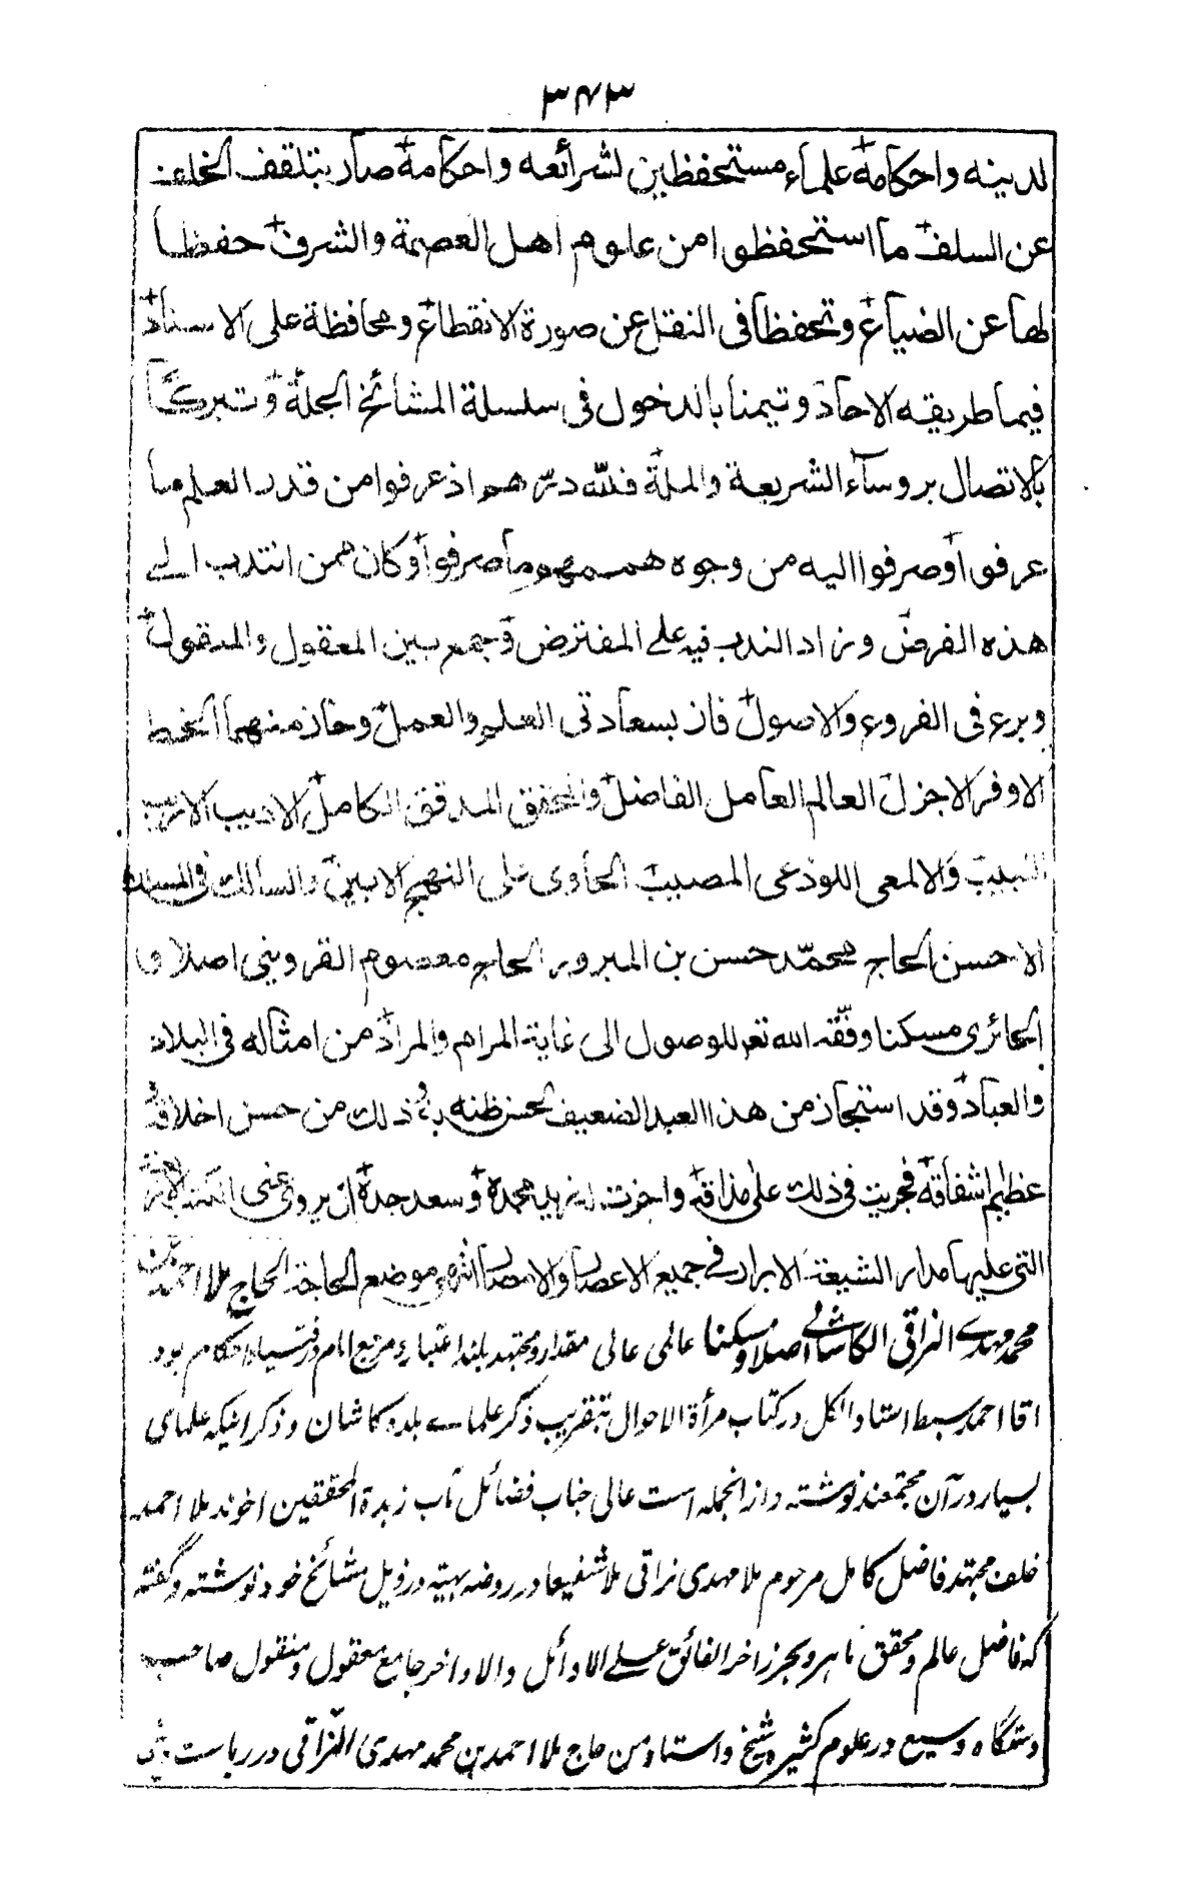 ۳۴۳
لدينه واحكامه علماء مستحفظين لشرائعه واحكامه صار بتلقف الخلف
عن السلف ما استحفظوا من علوم اهل العصمة والشرف حفظا
لها عن الضياع وتحفظا فى النقل عن صورة الانقطاع ومحافظة على الاسناد
فيما طريقه الاحاد وتيمنا بالدخول فى سلسلة المشائخ الجلة وتبركا
بالاتصال بروساء الشريعة والملة فلله درهم اذ عرفوا من قدر العلم ما
عرفوا وصرفوا اليه من وجوه هممهم ما صرفوا وكان ممن انتدب الے
هذه الفرض وزاد الندب فيه علے المفترض وجمع بين المعقول والمنقول
وبرع فى الفروع والاصول فاز بسعادتى العلم والعمل وحاز منهما الحظ
الاوفر الاجزل العالم العامل الفاضل والمحقق المدقق الكامل الاديب الاريب
اللبيب والالمعى اللوذعى المصيب الحاوى على النهج الابين والسالك فى المسلك
الاحسن الحاج محمد حسن بن المبرور الحاج معصوم القزوينى اصلا و
الحائرى مسكنا وفقه الله تعم للوصول الى غاية المرام والمراد من امثاله فى البلاد
والعباد وقد استجاز من هذا العبد الضعيف لحسن ظنه به وذلك من حسن اخلاقه
عظيم اشفاقه فجريت فى ذلك على مذاقه واجزت له زيد مجده وسعد جده ان يروى عنى الكتب الاربعة
التى عليها مدار الشيعة الابرار فے جميع الاعصار والامصار انتهى موضع الحاجة الحاج ملا احمد بن
محمد مهدے النراقى الكاشانے اصلا ومسكنا عالمى عالى مقدار ومجتهد بلند اعتبار ومرجع انام در فتيا واحكام بود
اقا احمد سبط استاد الكل در كتاب مرأة الاحوال بتقريب ذكر علماے بلده كاشان وذكر اينكه علماى
بسيار در آن مجتمعند نوشته واز انجمله است عالى جناب فضائل مآب زبدة المحققين اخوند ملا احمد
خلف مجتهد فاضل كامل مرحوم ملا مهدى نراقى ملا شفيعا در روضه بهيه در ذيل مشائخ خود نوشته وگفته
كه فاضل عالم ومحقق ماهر وبحر زاخر الفائق علے الاوائل والاواخر جامع معقول ومنقول صاحب
دستگاه وسيع در علوم كثير وشيخ واستاد من حاج ملا احمد بن محمد مهدى النراقى در رياست